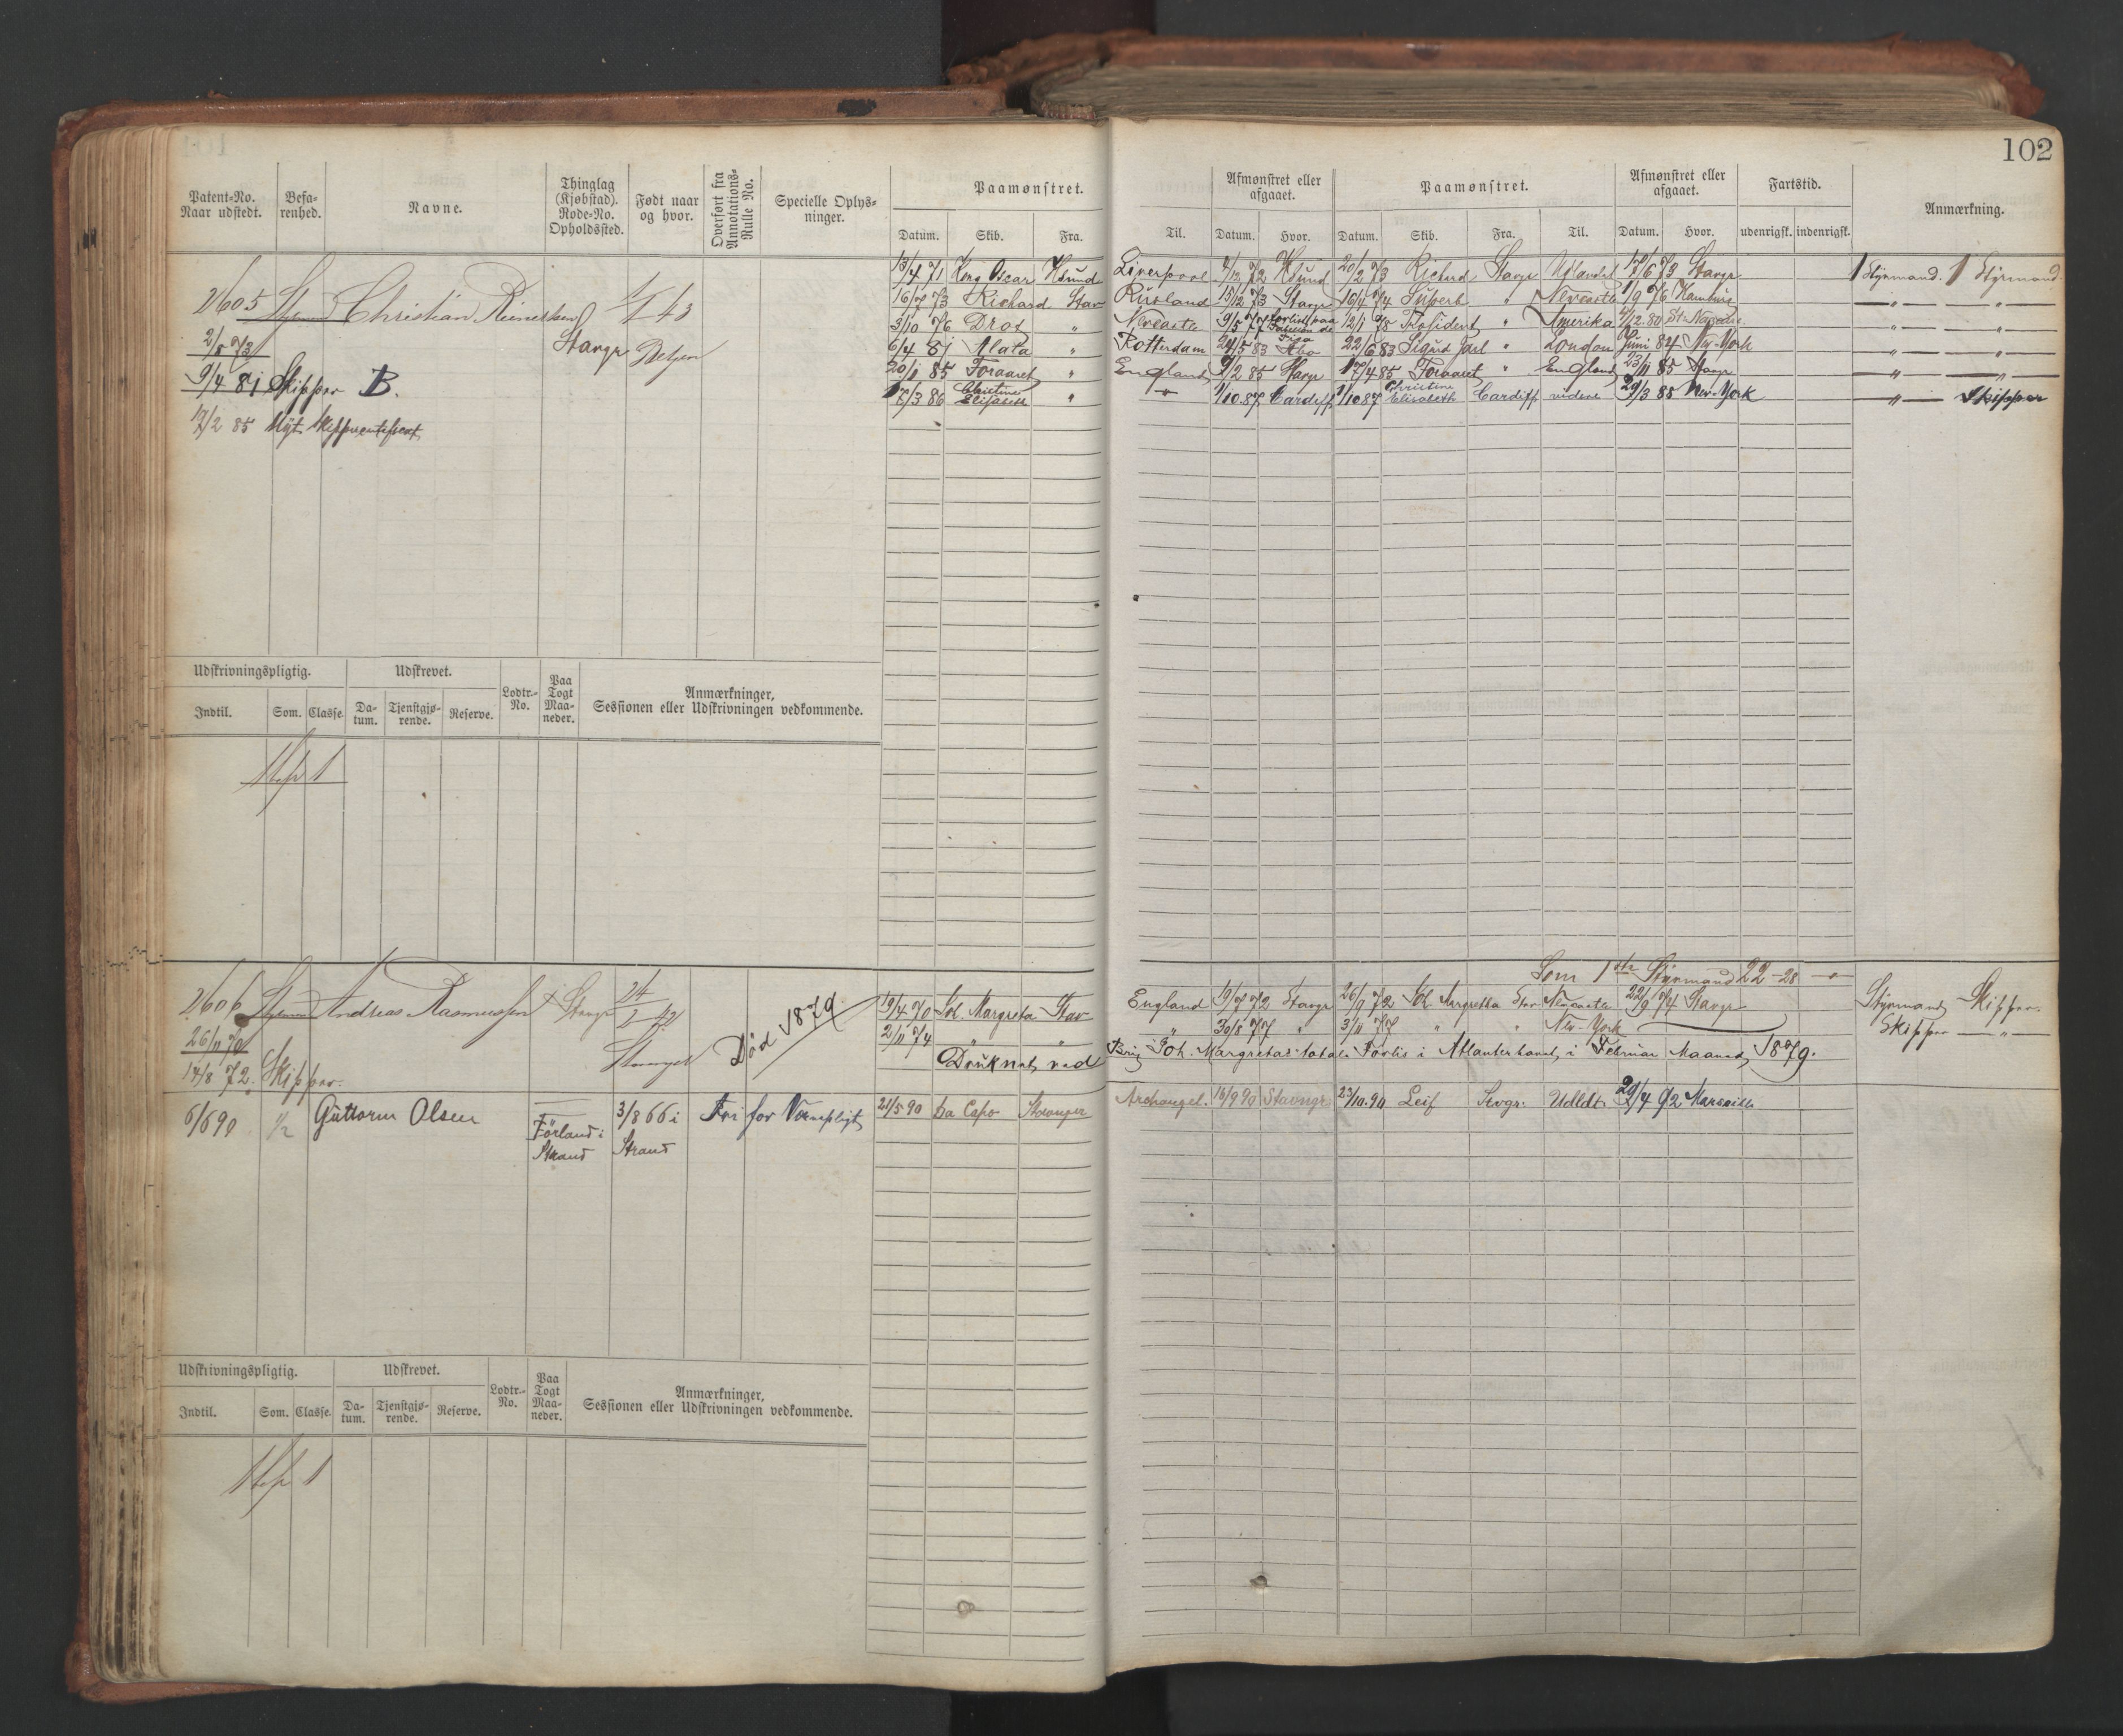 102
Patent-No. Naar udstedt.
Befarenhed.
Navne.
Thinglag (Kjøbstad). Rode-No. Opholdssted.
Født naar og hvor.
Overført fra Annotations-Rulle No.
Specielle Oplysninger.
Paamønstret.
Datum. Skib. Fra. Til.
Afmønstret eller afgaaet.
Datum. Hvor.
Paamønstret.
Datum. Skib. Fra. Til.
Afmønstret eller afgaaet.
Datum. Hvor.
Fartstid.
udenrigsk. indenrigsk.
Anmærkning.
2605 Christian Stavgr
2/5 73
9/4 81 Skipper B.
17/2 85 Nyt
13/4 71 Kong Oscar Hsund Liverpool 4/12 72 Hsund 20/2 73 Richard Stavgr Udlandet 17/6 73 Stavgr 1 Styrmand. 1 Styrmand.
16/7 73 Richard Stav Rusland 13/12 73 Stavgr 16/4 74 Superb " Newcastle 1/9 76 Hamburg " — "
3/10 76 Drot " Newcastle 9/5 77 forlist paa 12/1 78 President " Amerika 4/12 80 " — "
6/4 81 " Rotterdam 29/5 83 Åbo 22/6 83 Sigurd Jarl " London Juni 84 New-York " — "
20/11 85 Foraaret " England 9/2 85 Stavgr 17/4 85 Foraaret " England 23/11 85 Stavgr " — "
17/3 86 Christine Elisabeth " 1/10 87 Cardiff 1/10 87 Christine Elisabeth Cardiff videre 29/3 85 New-York " — Skipper
Udskrivningspligtig. Udskrevet. Lodtr.-No. Paa Togt Maaneder. Anmærkninger, Sessionen eller Udskrivningen vedkommende.
Indtil. Som. Classe. Datum. Tjenstgjørende. Reserve.
1
Som 1ste Styrmand 22-28
2606 Andreas Rasmussen Stavgr 24/2 42 Stavanger
26/11 70
14/8 72 Skipper.
Død 1879
19/4 70 Sol. Margreta Stav England 19/7 72 Stavgr 26/9 72 Sol Margretha Stav Newcastle 22/9 74 Stavgr Styrmand Skipper.
2/11 74 " " " 30/8 77 " 3/11 77 " " New-York Skipper — " —
Druknet ved Brig Joh. Margretas totale Forlis i Atlanterhavet, i Februar Maaned, 1879.
6/6 90 1/2 Guttorm Olsen Førland i Strand 3/8 66 i Strand Fri for Værnepligt 21/5 90 Da Capo Stavanger Archangel. 16/9 90 Stavngr. 23/10.90 Leif Svgr. Udldt. 29/4 92 Marseille
Udskrivningspligtig. Udskrevet. Lodtr.-No. Paa Togt Maaneder. Anmærkninger, Sessionen eller Udskrivningen vedkommende.
Indtil. Som. Classe. Datum. Tjenstgjørende. Reserve.
1